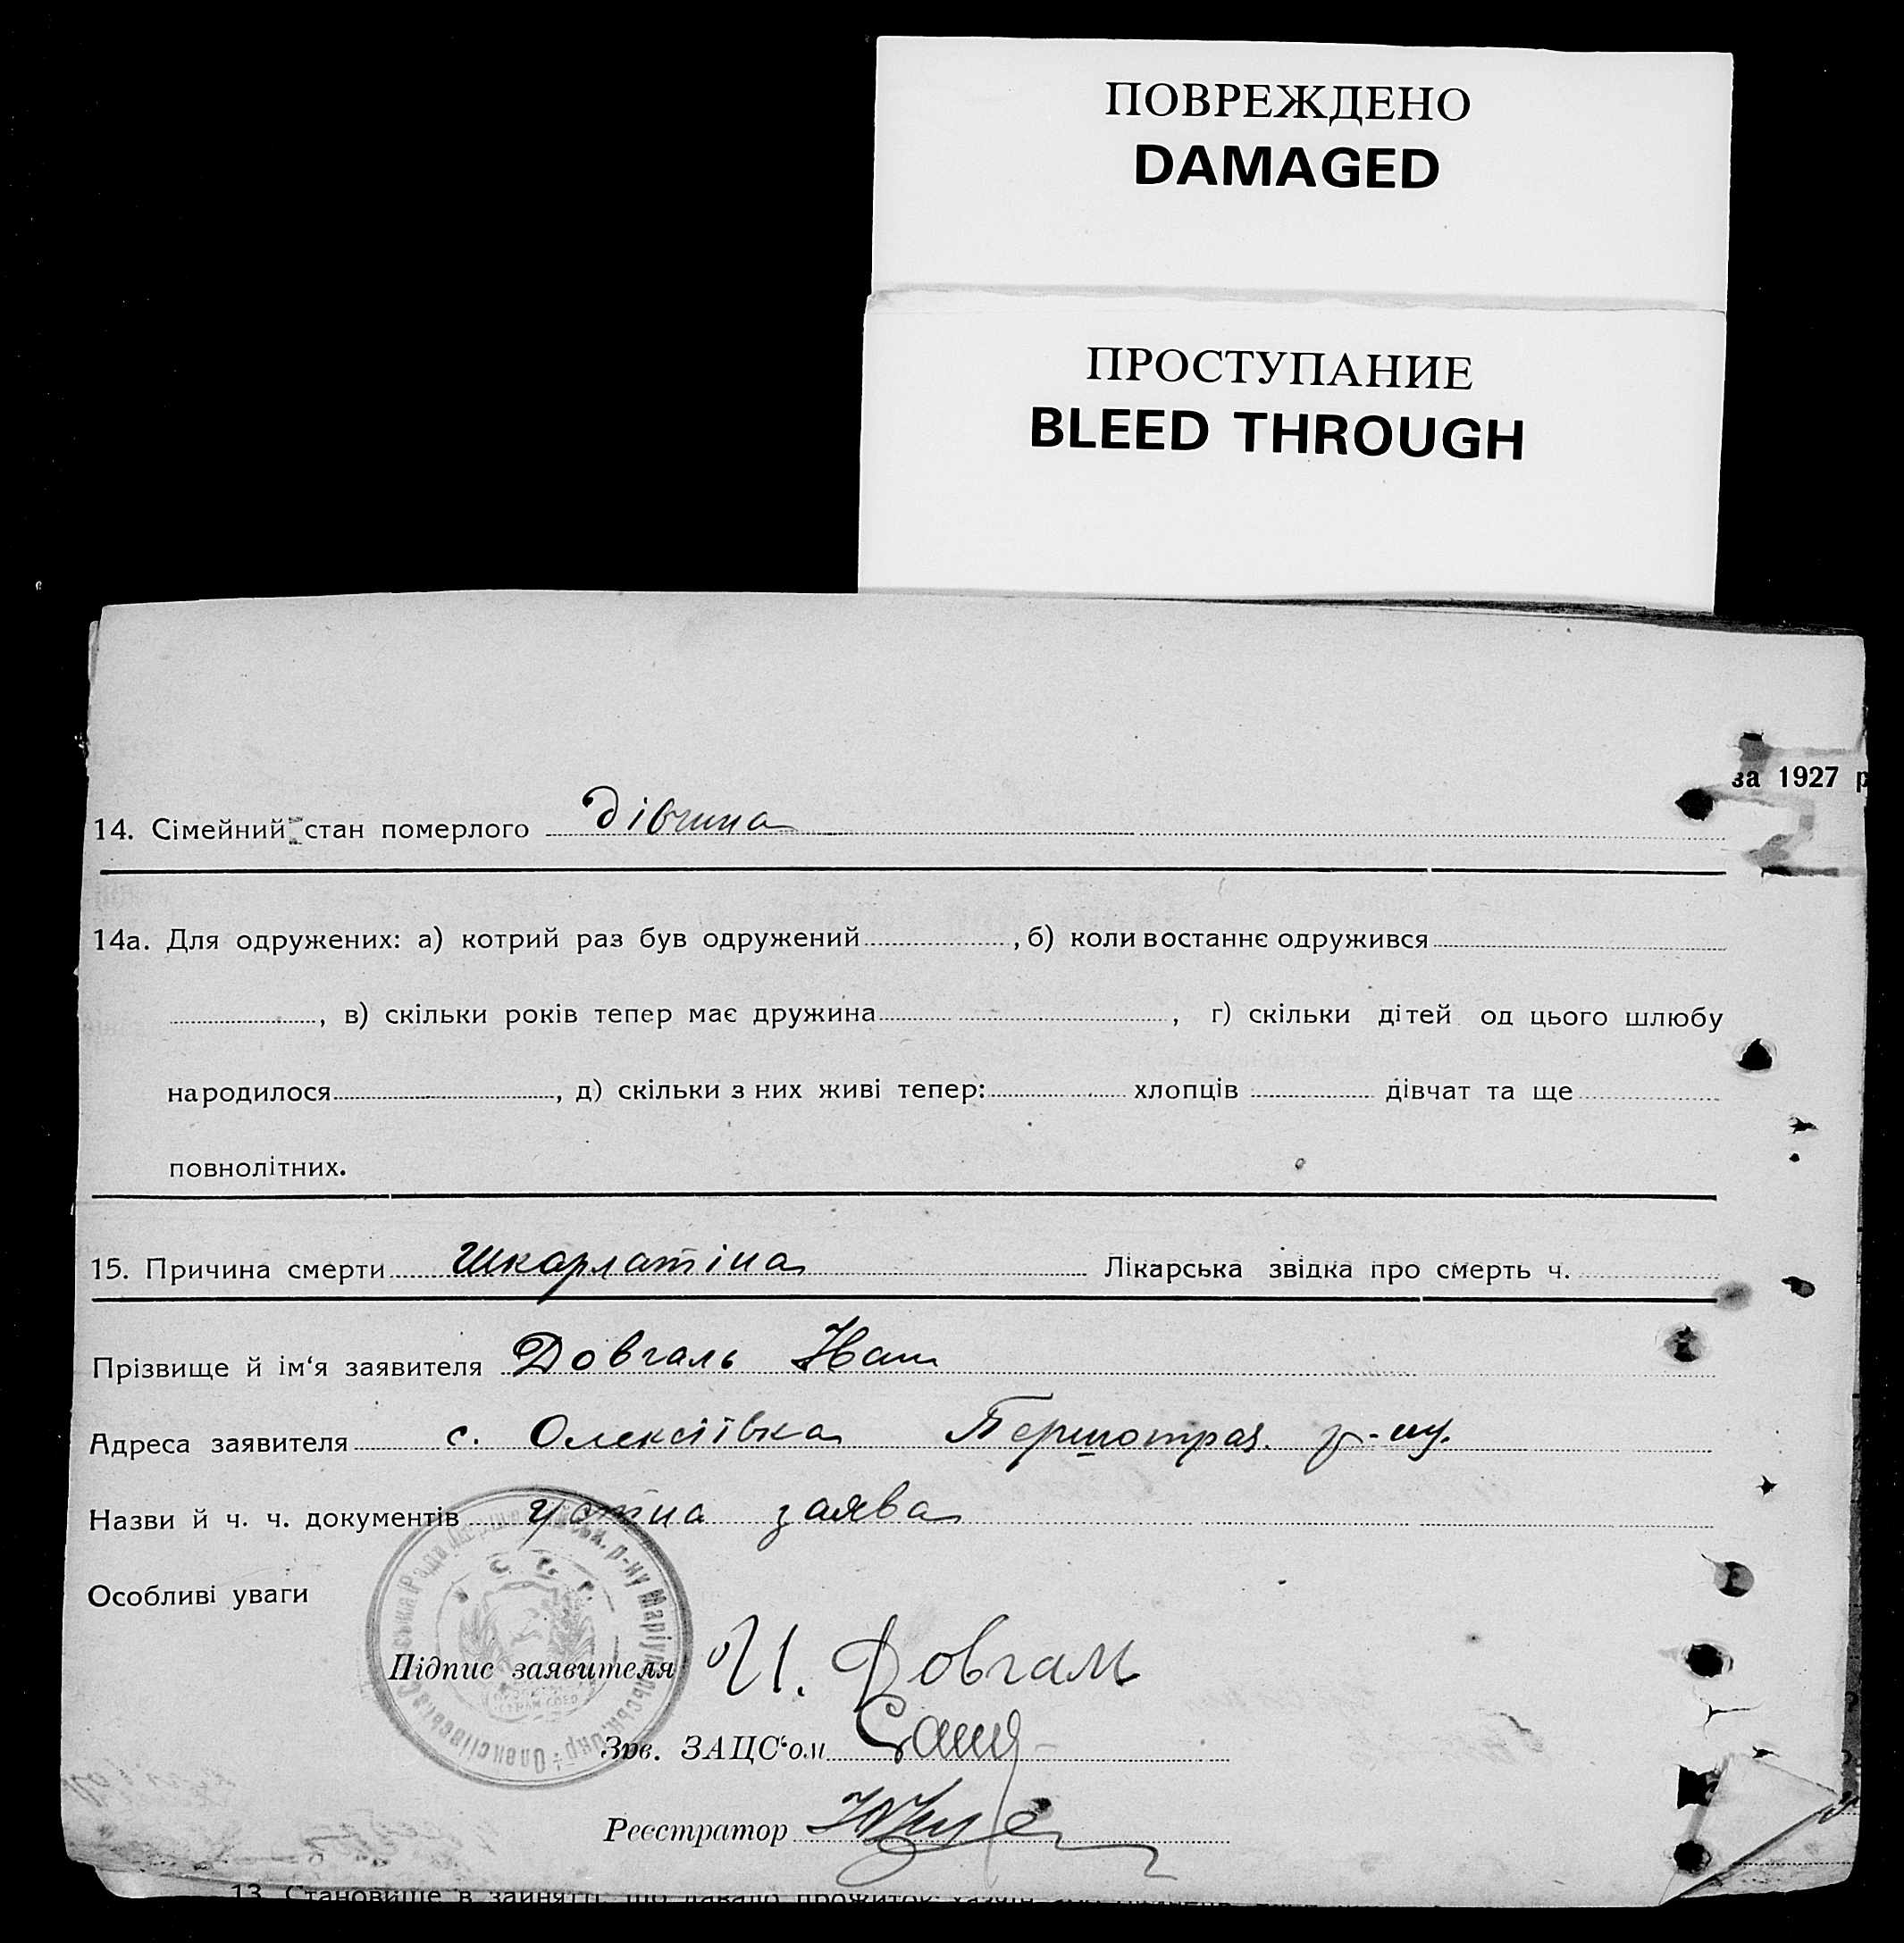 ПОВРЕЖДЕНО
DAMAGED
ПРОСТУПАНИЕ
BLEED THROUGH
за 1927 р
14. Сімейний стан померлого дівчина
14а. Для одружених: а) котрий раз був одружений , б) коли востаннє одружився
, в) скільки років тепер має дружина , г) скільки дітей од цього шлюбу
народилося , д) скільки з них живі тепер: хлопців дівчат та ще
повнолітних.
15. Причина смерти Шкарлатіна Лікарська звідка про смерть ч.
Прізвище й ім'я заявителя Довгаль
Адреса заявителя с. Олексіївка Першотрав. р-ну.
Назви й ч. ч. документів устна заява
Особливі уваги
Підпис заявителя И. Довгаль
Зав. ЗАЦС'ом
Реєстратор
13. Становище в занятті, що давало прожиток: